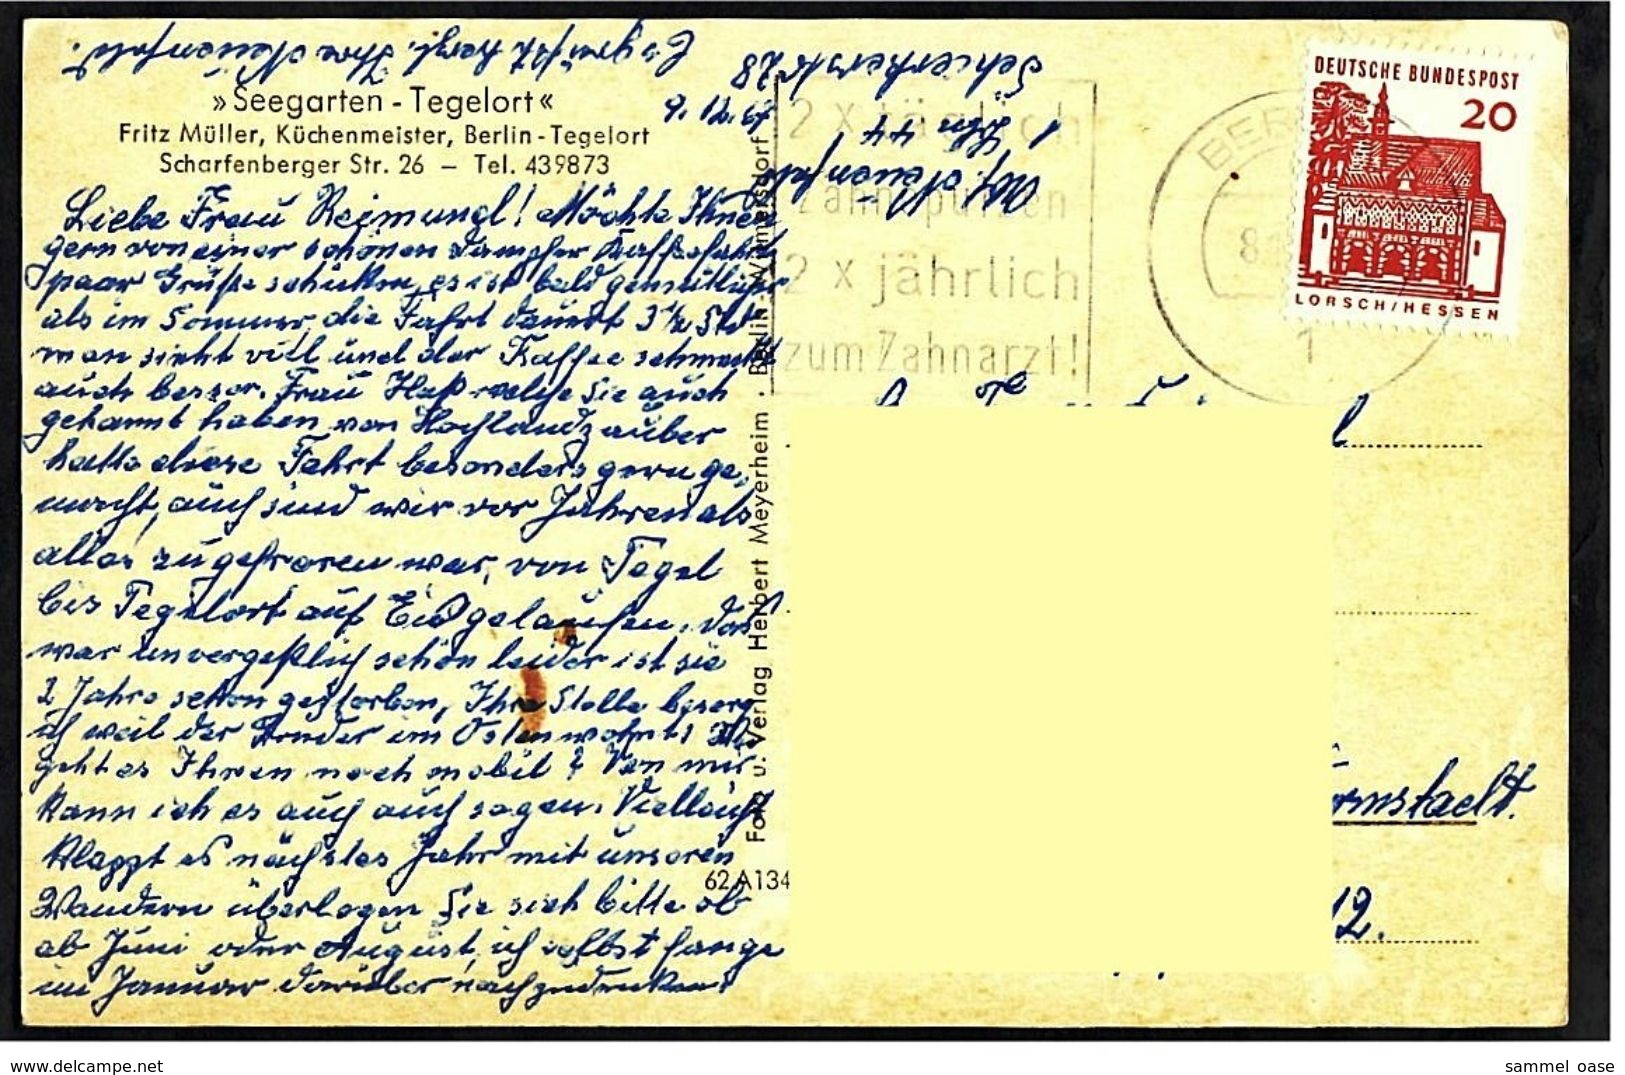 »Seegarten - Tegelort«
Fritz Müller, Küchenmeister, Berlin - Tegelort
Scharfenberger Str. 26 — Tel. 439873
9. 12. 67
Liebe Frau Reimungl! Möchte Ihnen
gern von einer schönen Dampfer Kaffeefahrt
paar Grüße schicken, es ist bald gemütlicher
als im Sommer, die Fahrt dauert 3 1/2 Std
man sieht viel und der Kaffee schmeckt
auch besser. Frau Haß welche Sie auch
gekannt haben von Hochlandzauber
hatte diese Fahrt besonders gern ge,
macht, auch sind wir vor Jahren als
alles zugefroren war, von Tegel
bis Tegelort auf Eis gelaufen. Das
war unvergeßlich schön leider ist sie
2 Jahre schon gestorben, Ihre Stelle besorg
ich weil der Bruder im Osten wohnt! Wie
geht es Ihnen noch mobil? Von mir
kann ich es auch auch sagen. Vielleicht
klappt es nächstes Jahr mit unseren
Wandern überlegen Sie sich bitte ob
ab Juni oder August, ich selbst fange
im Januar darüber nachzudenken!
Es grüßt herzl. Ihre
Schierkerstr 28
1 Bln 44
Foto u. Verlag Herbert Meyerheim · Berlin-Wilmersdorf
62 A134
2 x täglich
Zähneputzen
2 x jährlich
zum Zahnarzt!
1
DEUTSCHE BUNDESPOST
20
LORSCH/HESSEN
12.
sammel oase
www.delcampe.net